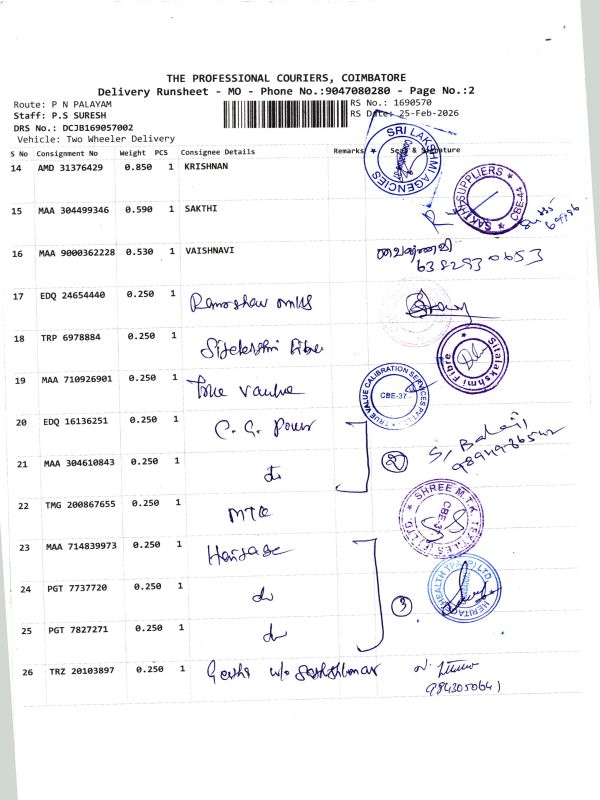 THE PROFESSIONAL COURIERS, COIMBATORE
Delivery Runsheet - MO - Phone No.:9047080280 - Page No.:2
Route: P N PALAYAM
RS No.: 1690570
Staff: P.S SURESH
RS Date: 25-Feb-2026
DRS No.: DCJB169057002
Vehicle: Two Wheeler Delivery
S No Consignment No Weight PCS Consignee Details Remarks Seal & Signature
SRI LAKSHMI AGENCIES
14 AMD 31376429 0.850 1 KRISHNAN
SAKTHI SUPPLIERS CBE-44
15 MAA 304499346 0.590 1 SAKTHI
16 MAA 9000362228 0.530 1 VAISHNAVI வைஷ்ணவி
6382930653
17 EDQ 24654440 0.250 1
18 TRP 6978884 0.250 1 Sitelekshmi Fibre
Sitalakshmi Fibre
19 MAA 710926901 0.250 1 True Vaulue
TRUE VALUE CALIBRATION SERVICES PVT LTD CBE-37
20 EDQ 16136251 0.250 1 C. G. Power
S. Balaji
21 MAA 304610843 0.250 1 do 2
22 TMG 200867655 0.250 1 MTK
SHREE M.T.K. TEXTILES (P) LTD. CBE-37
23 MAA 714839973 0.250 1
24 PGT 7737720 0.250 1 do 3
25 PGT 7827271 0.250 1 do
26 TRZ 20103897 0.250 1 w/o
9843050641